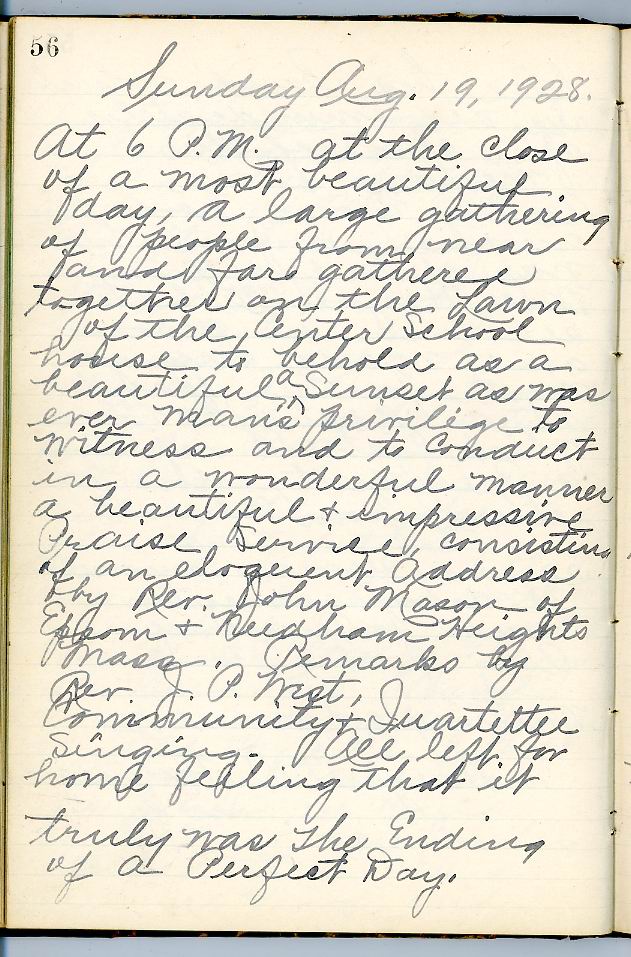 56
Sunday Aug. 19, 1928.
At 6 P.M. at the close
of a most beautiful
day, a large gathering
of people from near
and far gathered
together on the Lawn
of the Center School
house to behold as a
beautiful a Sunset as was
ever man's privilege to
witness and to conduct
in a wonderful manner
a beautiful & impressive
Praise Service, consisting
of an eloquent Address
by Rev. John Mason of
Epsom & Needham Heights
Mass. Remarks by
Rev. J. P. West,
Community & Quartettee
Singing. All left for
home feeling that it
truly was the Ending
of a Perfect Day.